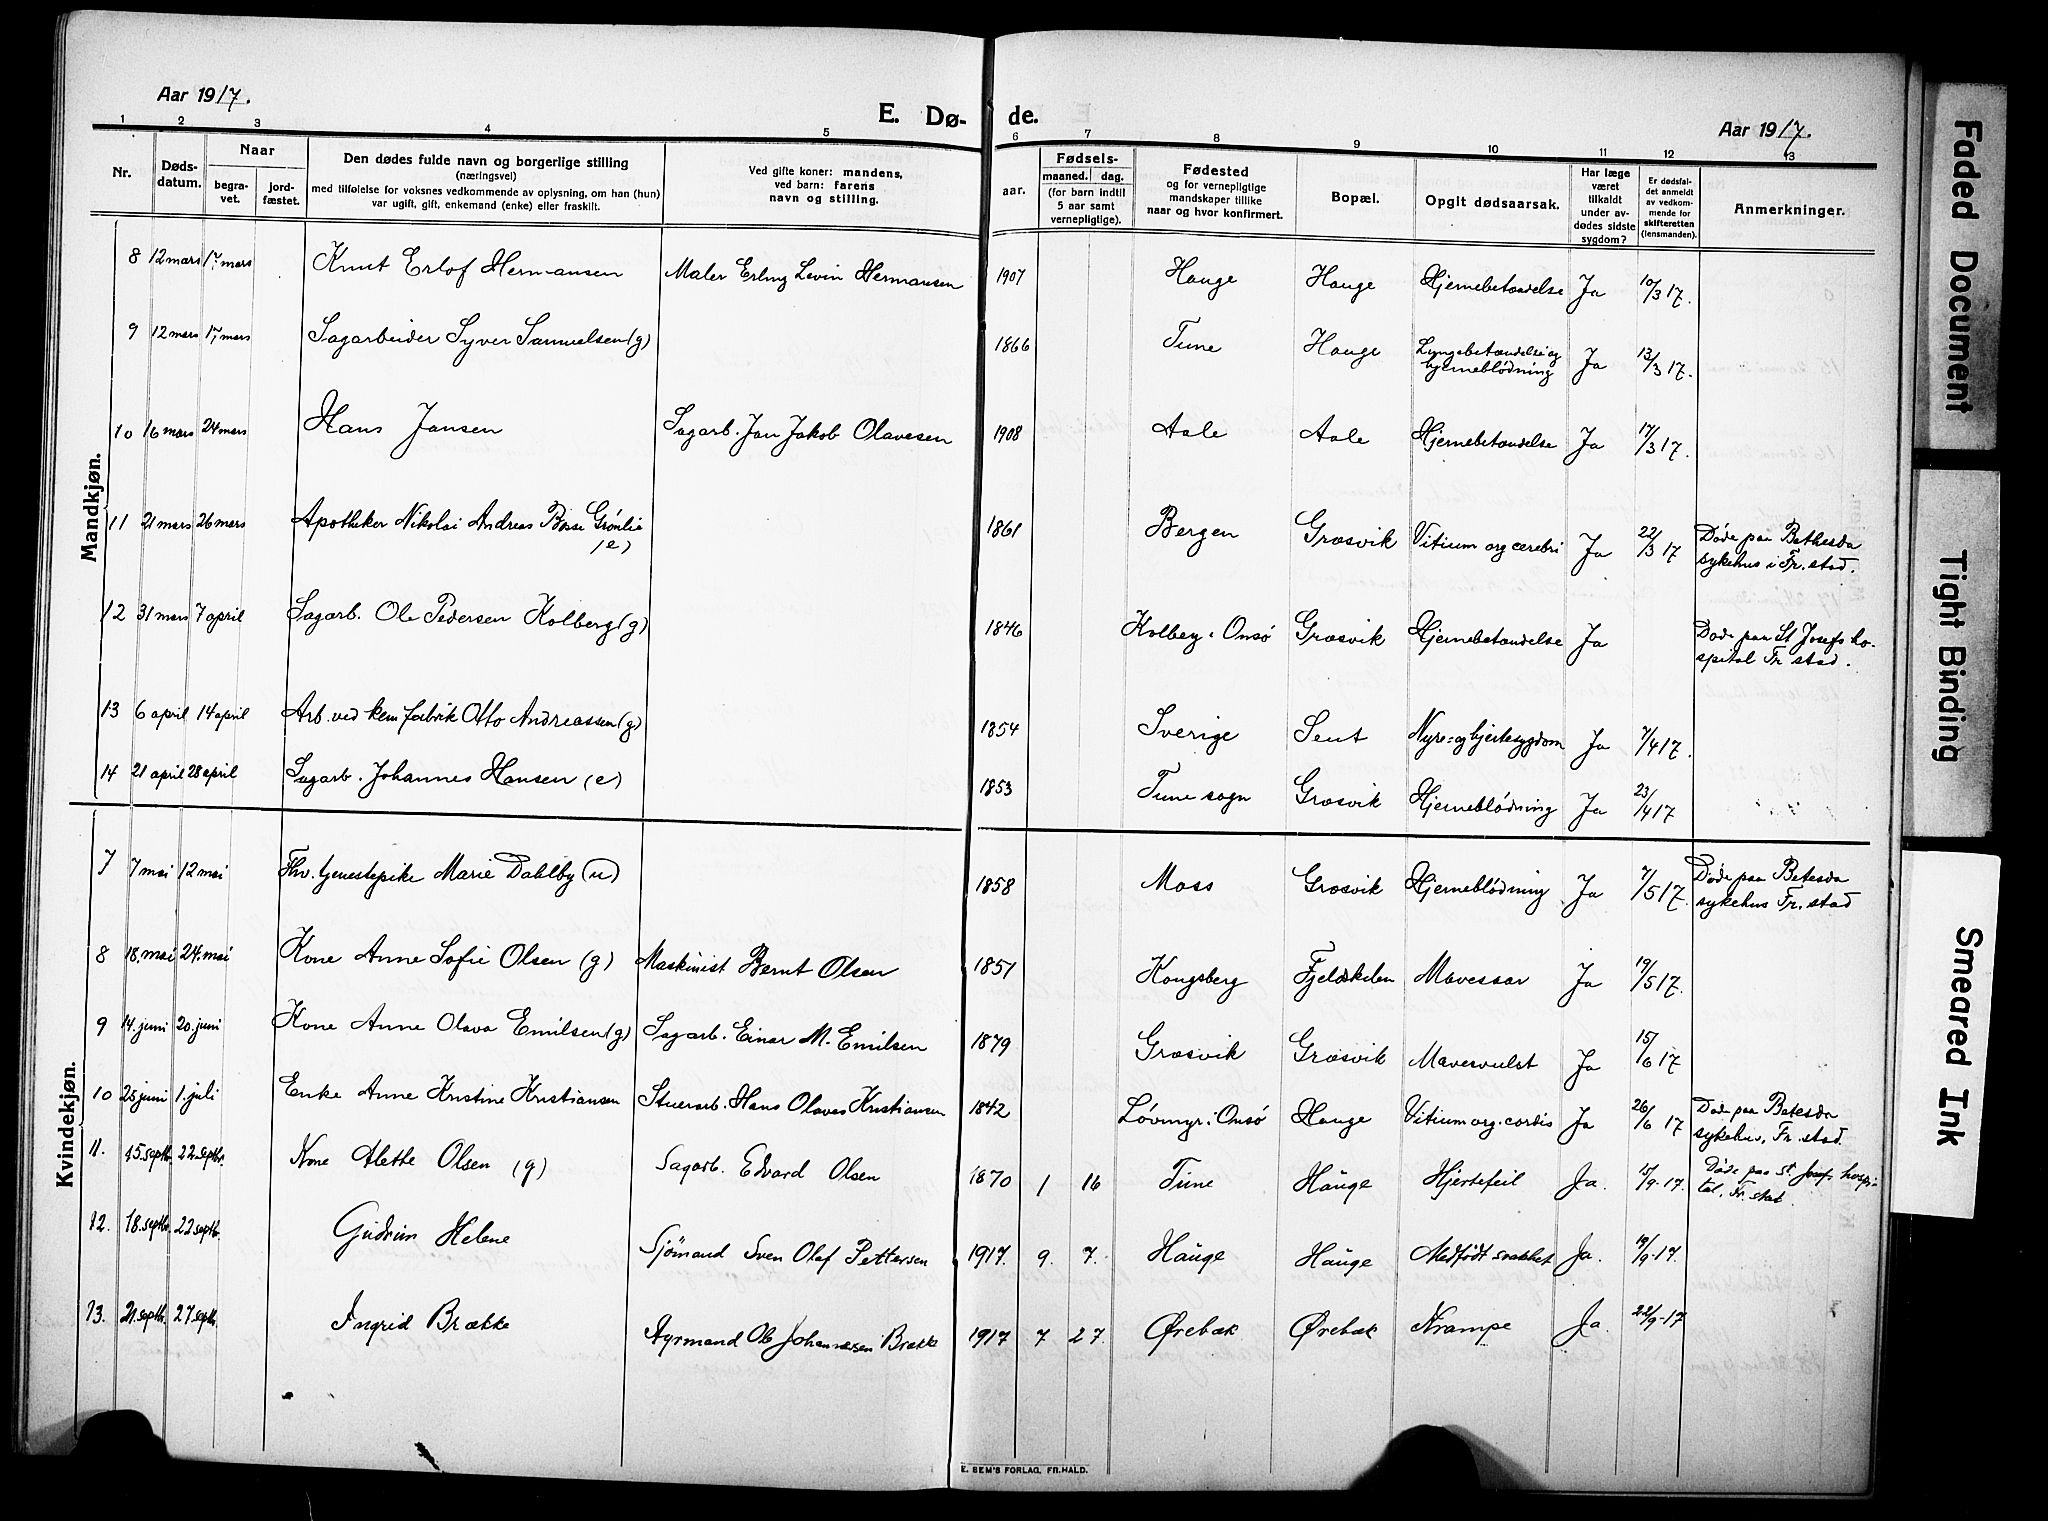 Aar 1917.
E. Dø- de.
Aar 1917.
1 2 3 4 5 6 7 8 9 10 11 12 13
Nr. Døds-datum. Naar begra-vet. jord-fæstet. Den dødes fulde navn og borgerlige stilling (næringsvei) med tilføielse for voksnes vedkommende av oplysning, om han (hun) var ugift, gift, enkemand (enke) eller fraskilt. Ved gifte koner: mandens, ved barn: farens navn og stilling. aar. Fødsels- maaned. dag. (for barn indtil 5 aar samt vernepligtige). Fødested og for vernepligtige mandskaper tillike naar og hvor konfirmert. Bopæl. Opgit dødsaarsak. Har læge været tilkaldt under av-dødes sidste sygdom? Er dødsfal-det anmeldt av vedkom-mende for skifteretten (lensmanden). Anmerkninger.
Mandkjøn.
8 12 mars 17 mars Knut Erlof Hermansen Maler Erling Levin Hermansen 1907 Hauge Hauge Hjernebetændelse Ja 10/3 17.
9 12 mars 17 mars Sagarbeider Syver Samuelsen (g) 1866 Tune Hauge Lungebetændelse og hjerneblödning Ja 13/3 17.
10 16 mars 24 mars Hans Jansen Sagarb. Jan Jakob Olavesen 1908 Aale Aale Hjernebetændelse Ja 17/3 17.
11 21 mars 26 mars Apotheker Nikolai Andreas Grønlie (e) 1861 Bergen Græsvik Vitium org cerebri Ja 22/3 17 Døde paa Bethesda sykehus i Fr. stad.
12 31 mars 7 april Sagarb. Ole Pedersen Kolberg (g) 1846 Kolberg i Onsö Græsvik Hjernebetændelse Ja Døde paa St Josefs ho-spital Fr stad.
13 6 april 14 april Arb. ved kem fabrik Otto Andreassen (g) 1854 Sverige Sent Nyre- og hjertesygdom Ja 7/4 17.
14 21 april 28 april Sagarb. Johannes Hansen (e) 1853 Tune sogn Græsvik Hjerneblödning Ja 23/4 17
Kvindekjøn.
7 7 mai 12 mai Fhv. tjenestepike Marie Dahlby (u) 1858 Moss Græsvik Hjerneblödning Ja 7/5 17. Døde paa Betesda sykehus Fr. stad
8 18. mai 24. mai Kone Anne Sofie Olsen (g) Maskinist Bernt Olsen 1851 Kongsberg Fjeldskilen Mavessar Ja 19/5 17.
9 14. juni 20. juni Kone Anne Olava Emilsen (g) Sagarb. Einar M. Emilsen 1879 Græsvik Græsvik Mavesvulst Ja 15/6 17
10 25 juni 1. juli Enke Anne Kristine Kristiansen Stuerarb. Hans Olaves Kristiansen 1842 Løvmyr i Onsö Hauge Vitium org. cordis Ja 26/6 17 Døde paa Betesda sykehus, Fr. stad.
11. 15. septbr. 22. septbr. Kone Alette Olsen (g) Sagarb. Edvard Olsen 1870 1 16 Tune Hauge Hjertefeil Ja. 15/9-17. Døde paa St. Josefs hospi-tal, Fr. stad.
12. 18. septbr. 22 septbr. Gudrun Helene Sjömand Sven Olaf Pettersen 1917. 9. 7. Hauge Hauge Medfödt svakhet Ja. 19/9-17.
13. 21. septbr. 27. septbr. Ingrid Brække Styrmand Ole Johannessen Brække 1917 7 27. Ørebæk Ørebæk Krampe Ja. 22/9-17
E. SEM'S FORLAG, FR.HALD.
Faded Document
Tight Binding
Smeared Ink